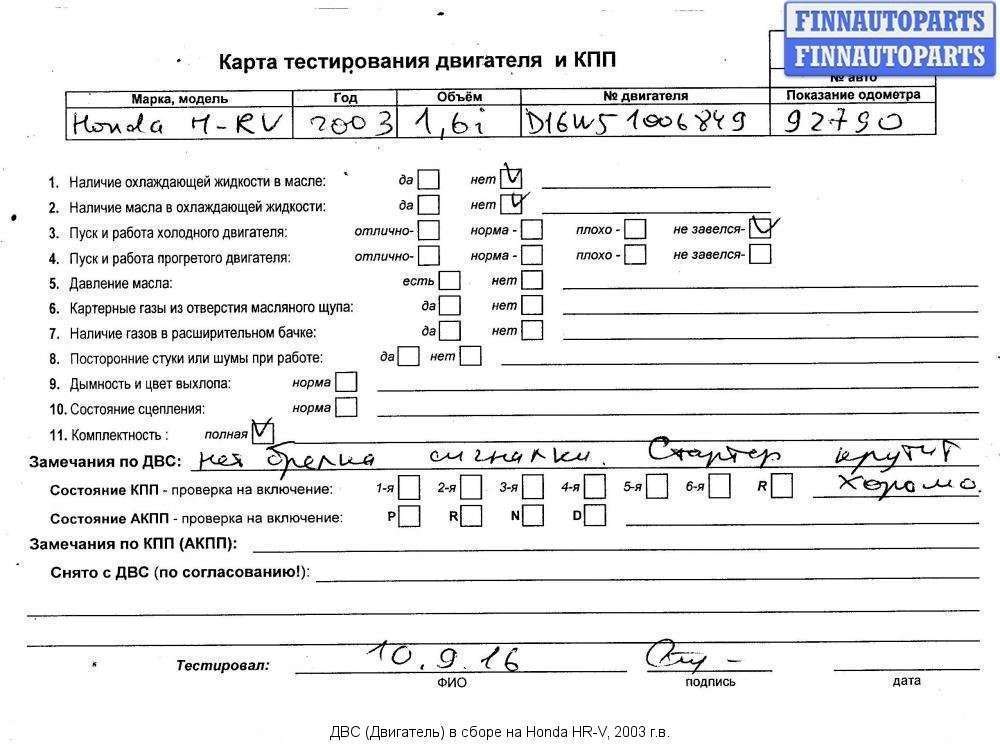 FINNAUTOPARTS
FINNAUTOPARTS
Карта тестирования двигателя и КПП
№ авто
Марка, модель Год Объём № двигателя Показание одометра
Honda H-RV 2003 1,6i D16W5 1006849 92790
1. Наличие охлаждающей жидкости в масле: да нет
2. Наличие масла в охлаждающей жидкости: да нет
3. Пуск и работа холодного двигателя: отлично- норма - плохо - не завелся-
4. Пуск и работа прогретого двигателя: отлично- норма - плохо - не завелся-
5. Давление масла: есть нет
6. Картерные газы из отверстия масляного щупа: да нет
7. Наличие газов в расширительном бачке: да нет
8. Посторонние стуки или шумы при работе: да нет
9. Дымность и цвет выхлопа: норма
10. Состояние сцепления: норма
11. Комплектность : полная
Замечания по ДВС: нет брелка сигналки. Стартер крутит
Состояние КПП - проверка на включение: 1-я 2-я 3-я 4-я 5-я 6-я R хорошо.
Состояние АКПП - проверка на включение: P R N D
Замечания по КПП (АКПП):
Снято с ДВС (по согласованию!):
Тестировал: 10.9.16
ФИО подпись дата
ДВС (Двигатель) в сборе на Honda HR-V, 2003 г.в.